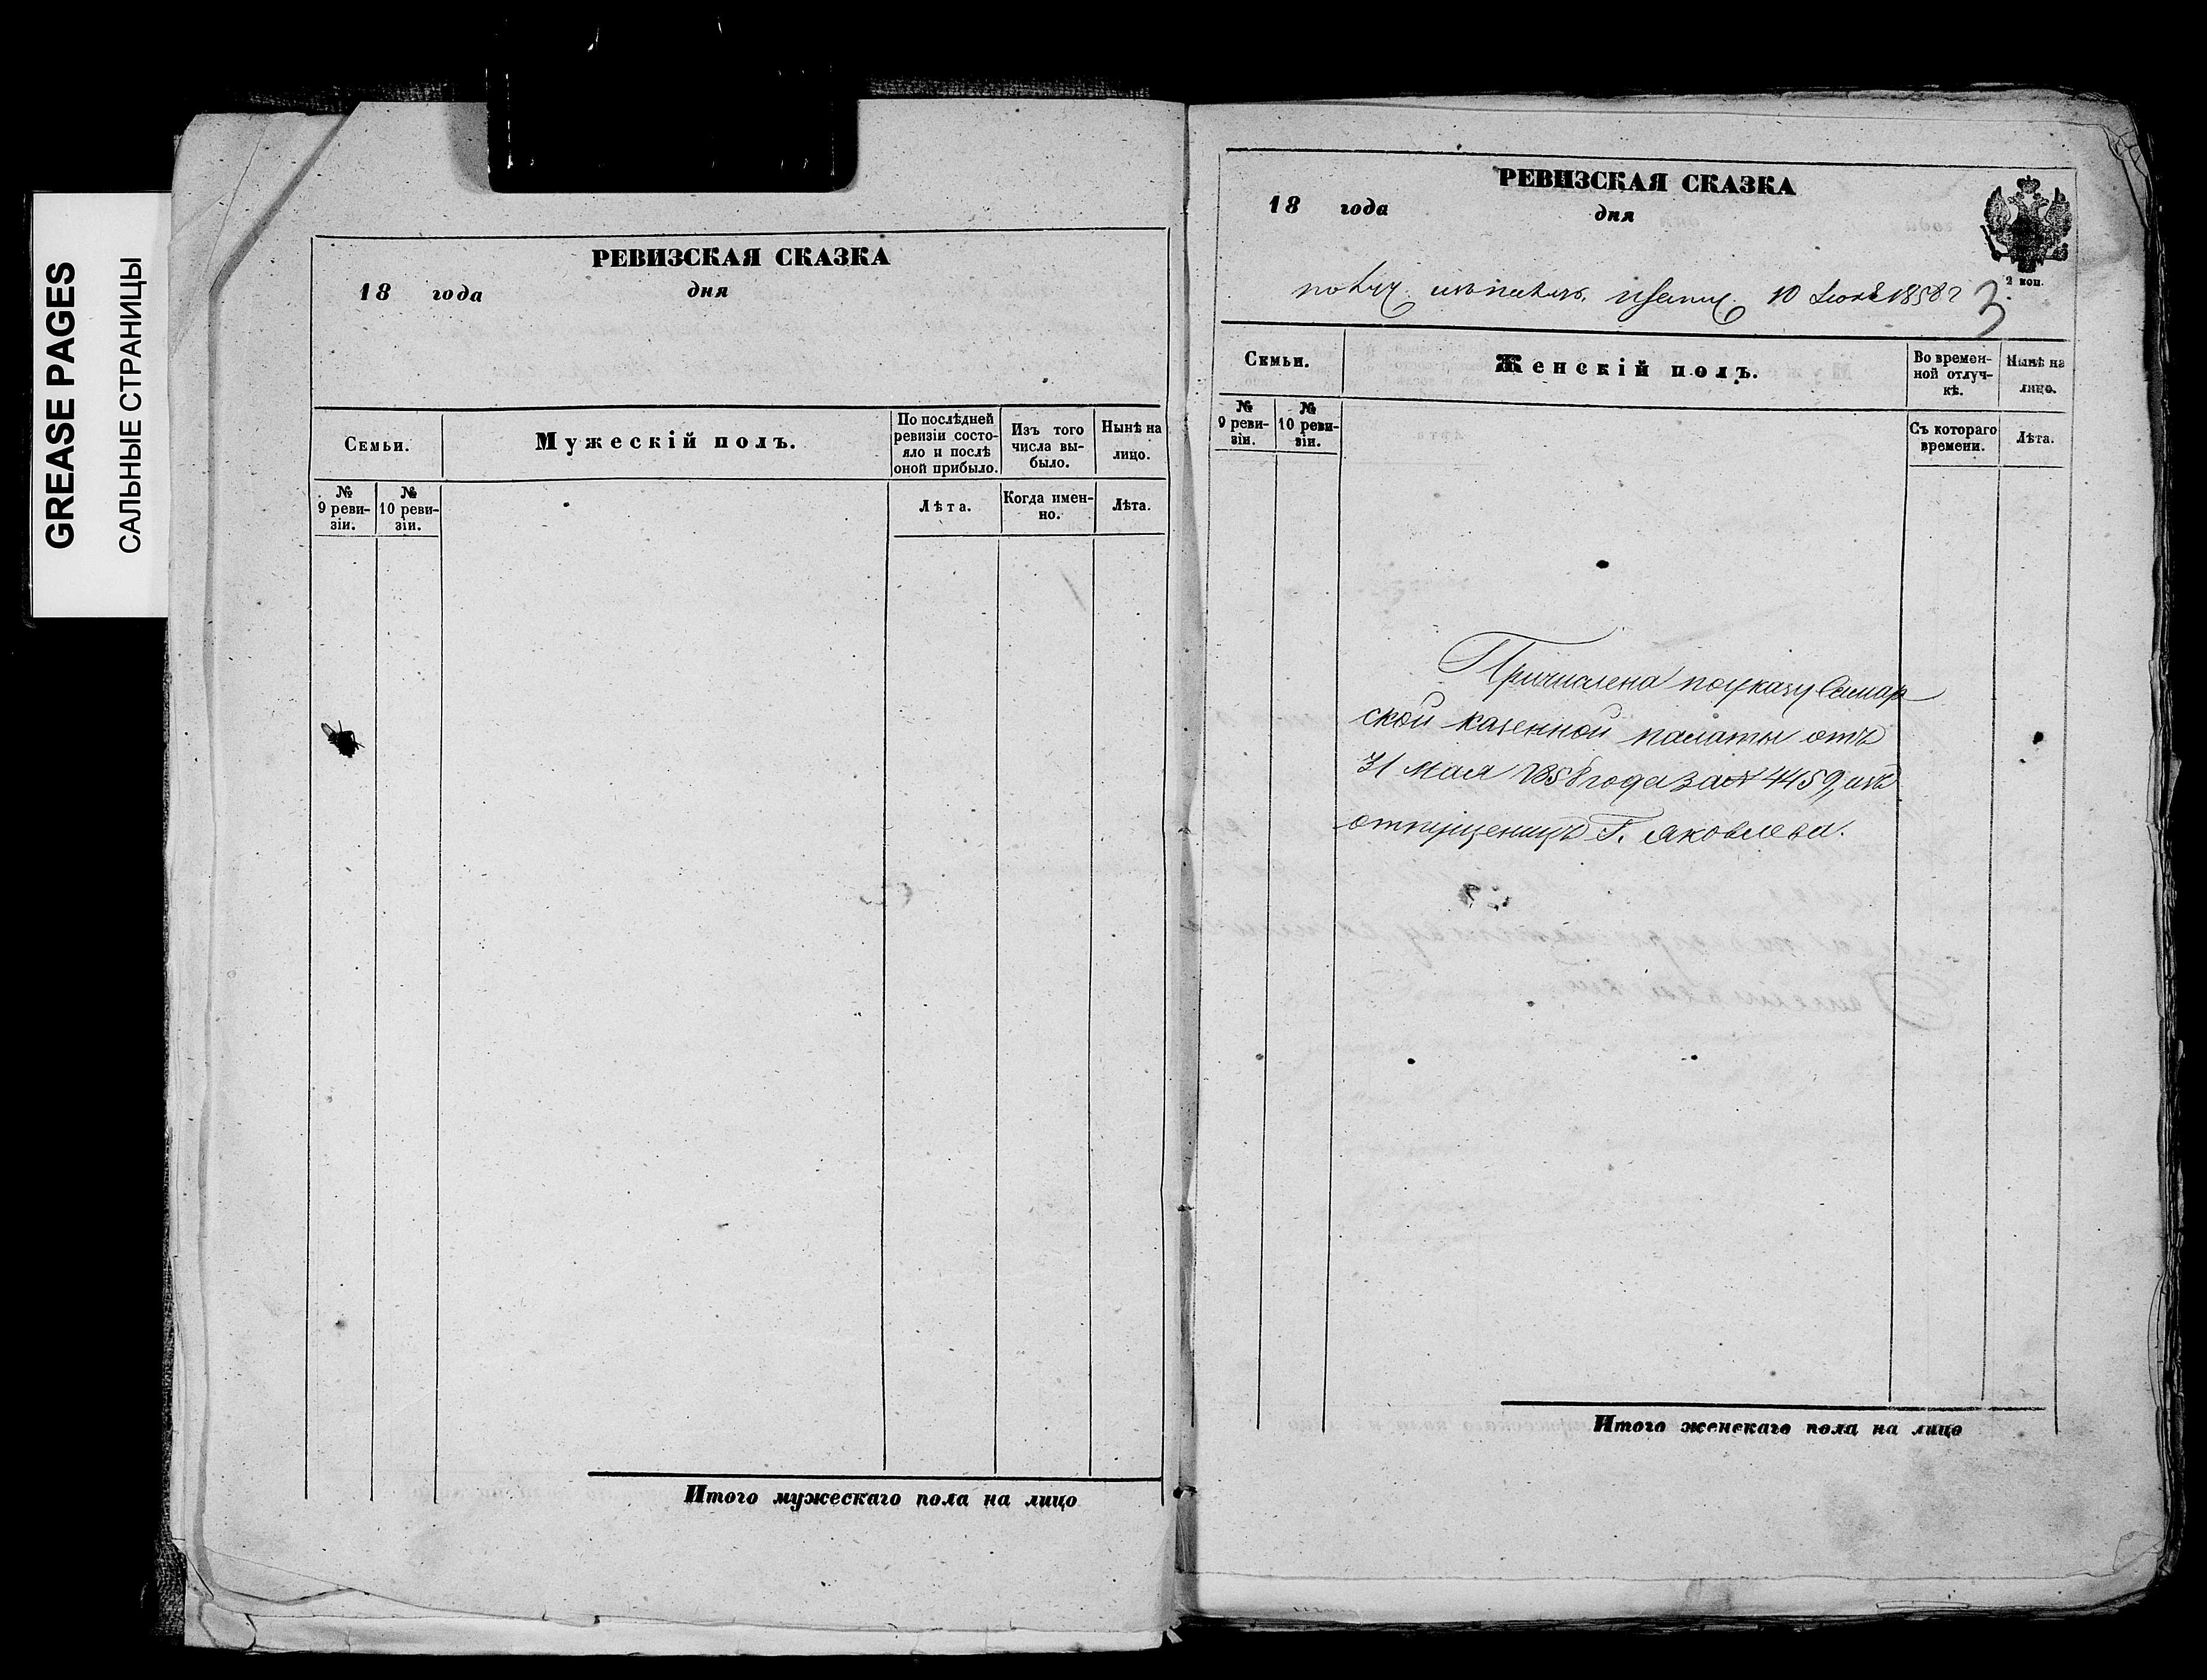 GREASE PAGES
САЛЬНЫЕ СТРАНИЦЫ
РЕВИЗСКАЯ СКАЗКА
18 года дня
Семьи.
Мужескій полъ.
По послѣдней ревизіи состо-
яло и послѣ
оной прибыло.
Изъ того
числа вы-
было.
Нынѣ на
лицо.
№
9 реви-
зіи.
№
10 реви-
зіи.
Лѣта.
Когда имен-
но.
Лѣта.
Итого мужескаго пола на лицо
РЕВИЗСКАЯ СКАЗКА
18 года дня
2 коп.
10 Іюня 1858 г
3.
Семьи.
Женскій полъ.
Во времен-
ной отлуч-
кѣ.
Нынѣ на
лицо.
№
9 реви-
зіи.
№
10 реви-
зіи.
Съ котораго
времени.
Лѣта.
Причислена по указу Самар
ской казенной палаты отъ
31 Мая 1858 года за № 4459, изъ
отпущеницъ Г. Яковлева.
Итого женскаго пола на лицо